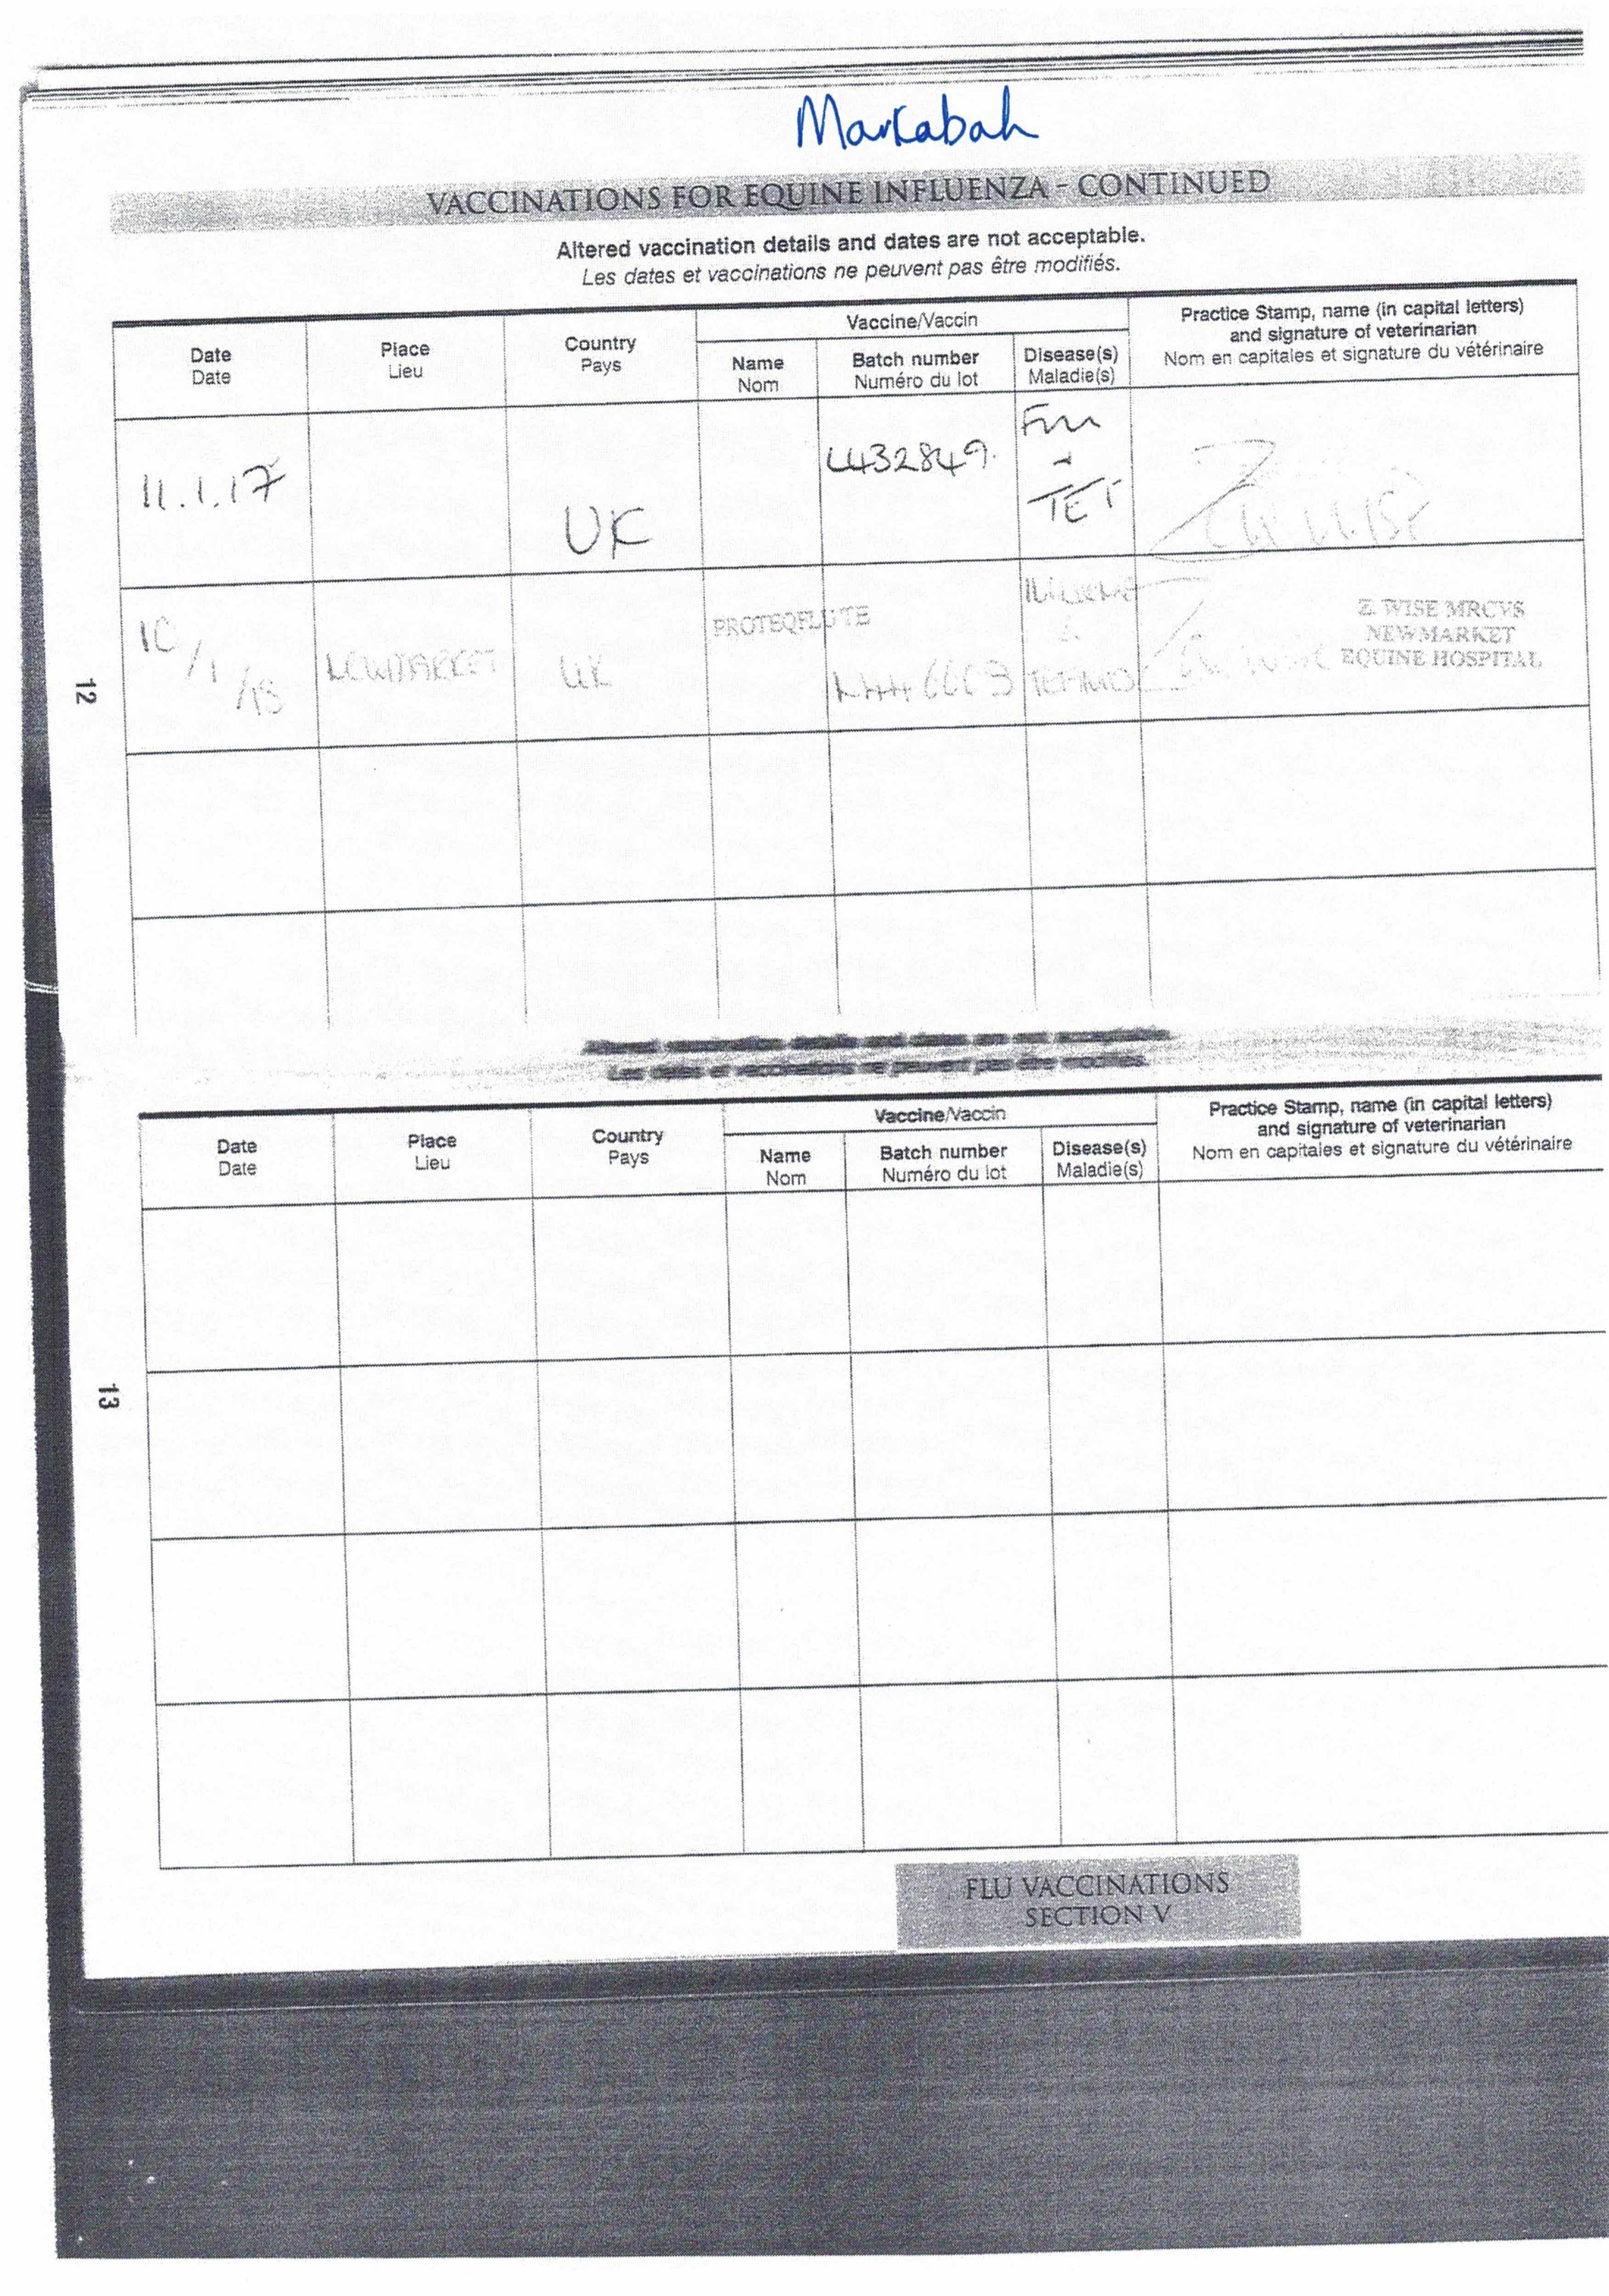 Markabah
VACCINATIONS FOR EQUINE INFLUENZA - CONTINUED
Altered vaccination details and dates are not acceptable.
Les dates et vaccinations ne peuvent pas être modifiés.
Date
Date
Place
Lieu
Country
Pays
Vaccine/Vaccin
Name
Nom
Batch number
Numéro du lot
Disease(s)
Maladie(s)
Practice Stamp, name (in capital letters)
and signature of veterinarian
Nom en capitales et signature du vétérinaire
11.1.17
UK
L432849
TET
10/1/18
NEWMARKET
UK
PROTEQFLUTE
Z. WISE MRCVS
NEWMARKET
EQUINE HOSPITAL
12
Altered vaccination details and dates are not acceptable.
Les dates et vaccinations ne peuvent pas être modifiés.
Date
Date
Place
Lieu
Country
Pays
Vaccine/Vaccin
Name
Nom
Batch number
Numéro du lot
Disease(s)
Maladie(s)
Practice Stamp, name (in capital letters)
and signature of veterinarian
Nom en capitales et signature du vétérinaire
13
FLU VACCINATIONS
SECTION V